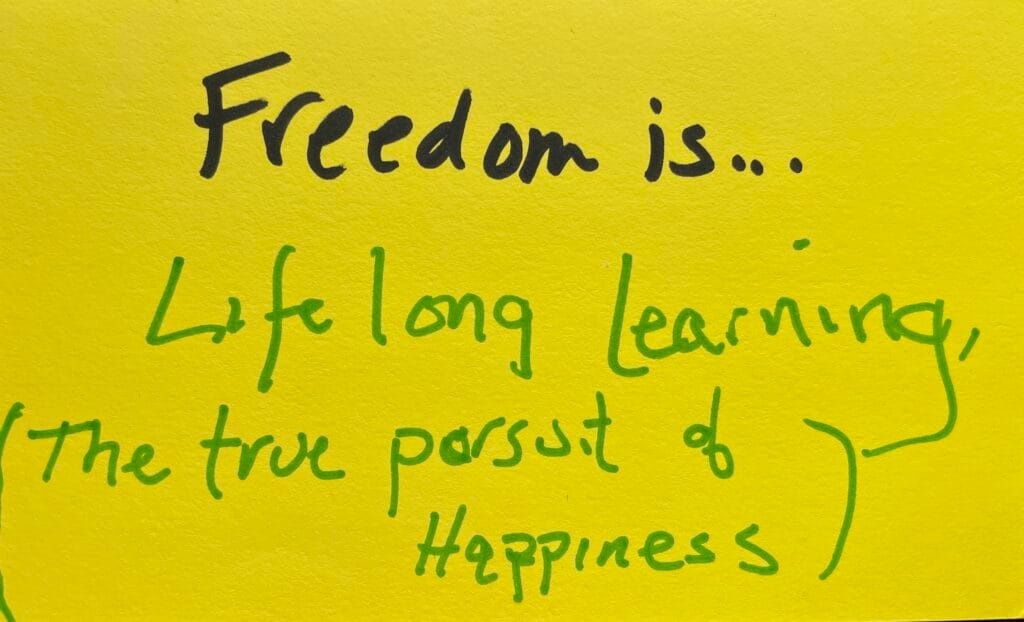 Freedom is...
Life long learning,
(The true pursuit of
Happiness)